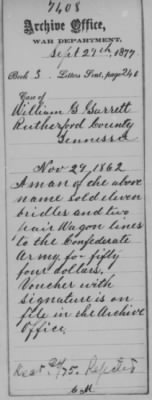 7408
Archive Office,
WAR DEPARTMENT,
Sept 29th, 1877
Book 3. Letters Sent, page 246
Case of
William G. Garrett
Rutherford County
Tennessee
Nov 29, 1862
A man of the above
name sold eleven
bridles and two
pair Wagon lines
to the Confederate
Army for fifty
four dollars.
Voucher with
signature is on
file in the Archive
Office.
/75.